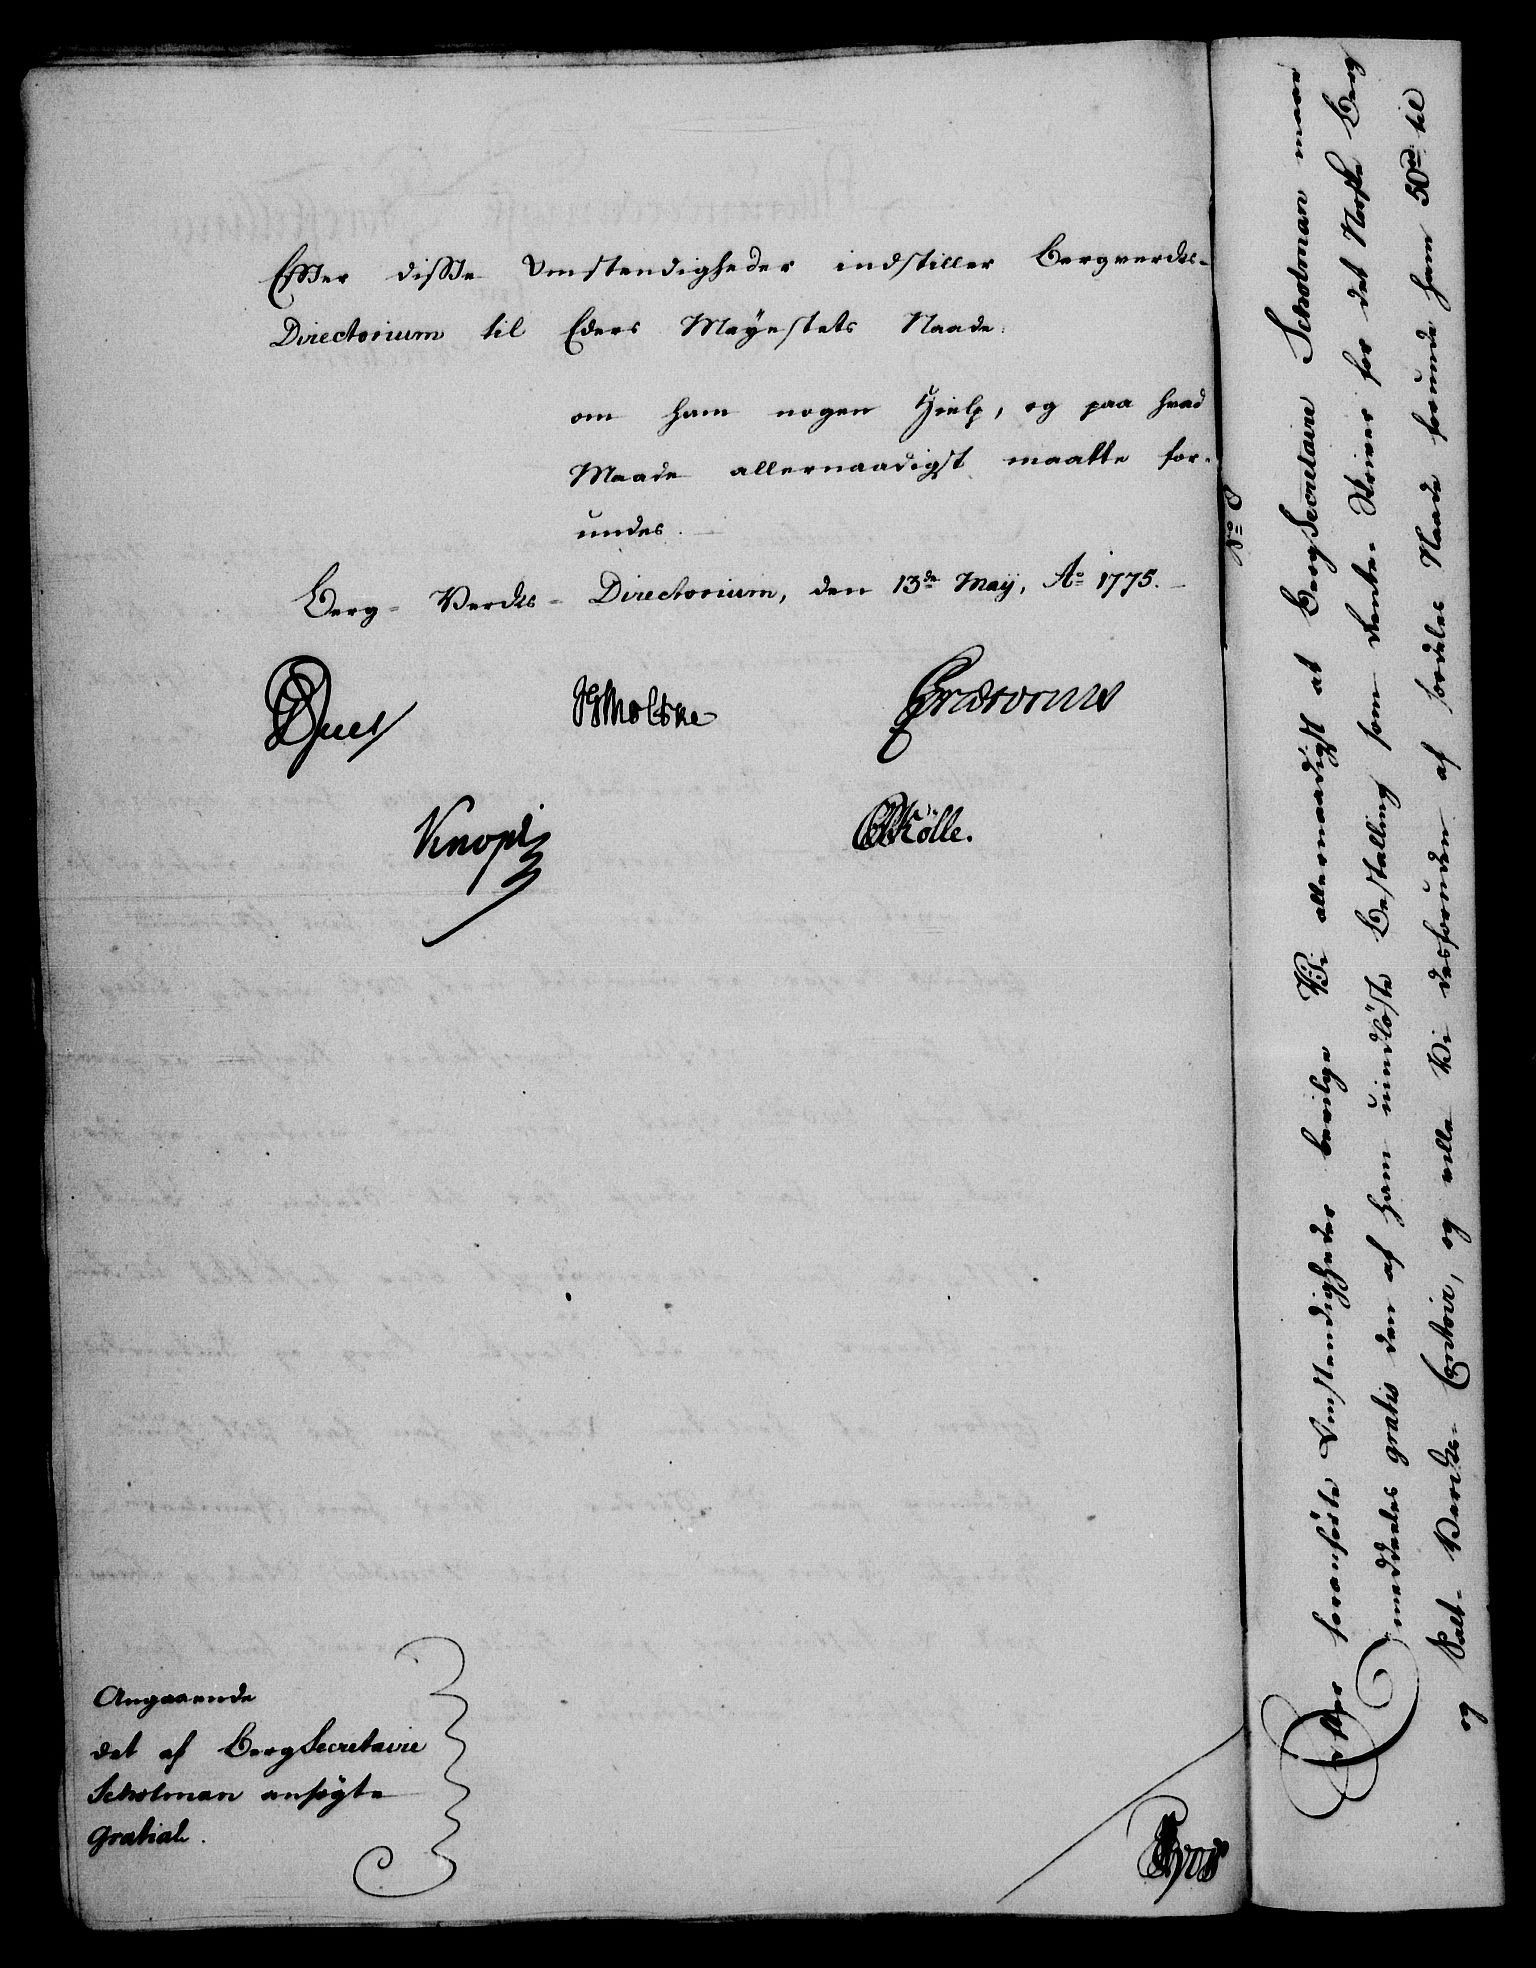 Efter disse Omstendigheder indstiller Bergverks-
Directorium til Eders Mayestets Naade:
om ham nogen Hielp, og paa hvad
Maade allernaadigst maatte for-
undes.
Berg-Verks-Directorium, den 13de May, Ao 1775.
Juel HMoltke Prætorius
Knoph Kölle.
Angaaende
det af BergSecretaire
Scholman ansøgte
Gratial.
No 8
Efter foranførte Omstendigheder bevilge Vi allernaadigst at BergSecretaire Scholman maae
meddeeles gratis den af ham uindløste Bestalling som Renteskriver for det Norske Berg
og Salt-Verks-Contoir, og ville Vi desforuden af særdeles Naade forunde ham 50rd til